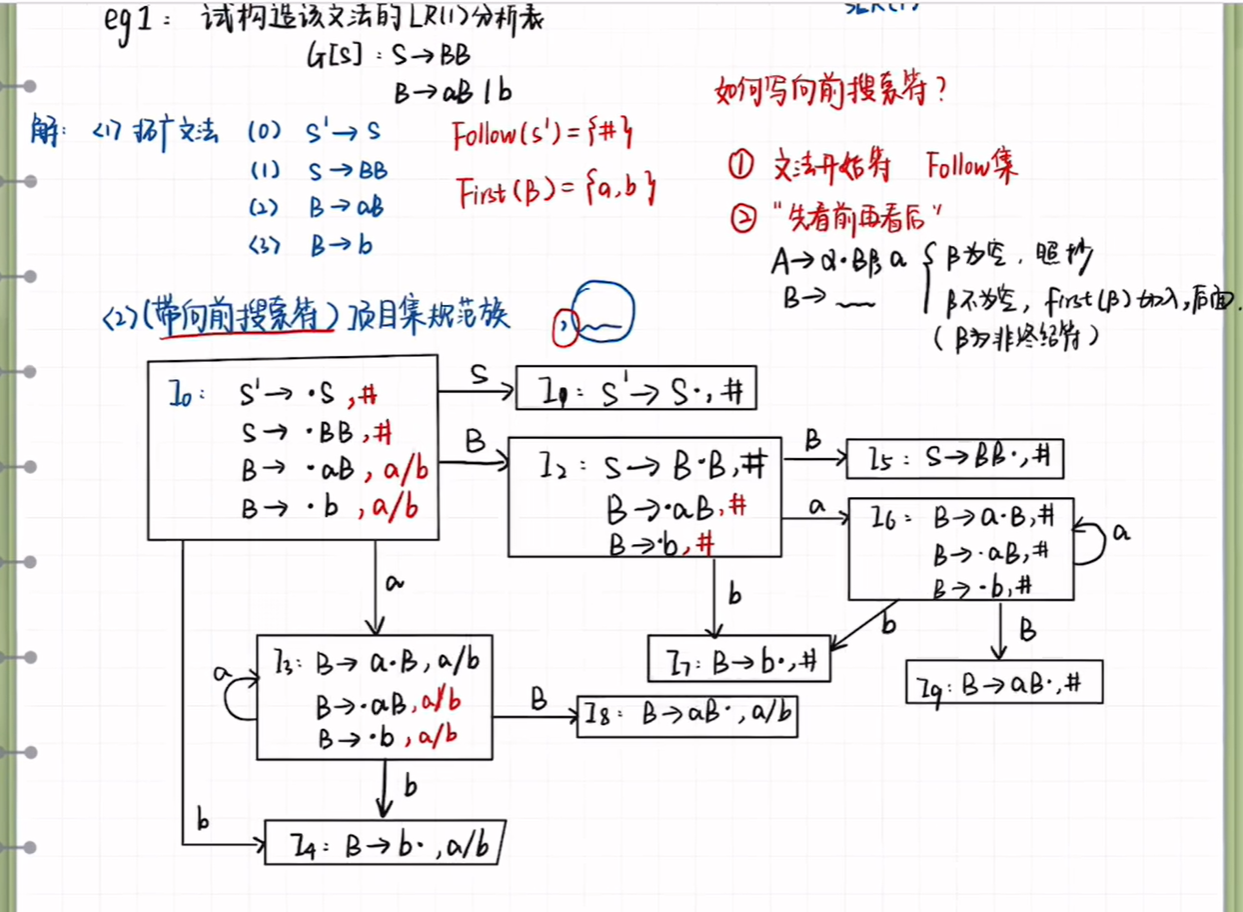 eg1: 试构造该文法的LR(1)分析表
G[S]: S→BB
B→aB|b
如何写向前搜索符?
解: <1> 拓广文法 (0) S'→S
(1) S→BB
(2) B→aB
(3) B→b
Follow(S')={#}
First(B)={a,b}
① 文法开始符 Follow集
② "先看前再看后"
A→α·Bβ a { β为空, 照抄
B→ β不为空, first(β)加入,后面.
(β为非终结符)
<2>(带向前搜索符)项目集规范族
,
I0: S'→·S,#
S→·BB,#
B→·aB,a/b
B→·b,a/b
S
I1: S'→S·,#
B
I2: S→B·B,#
B→·aB,#
B→·b,#
B
I5: S→BB·,#
a
I6: B→a·B,#
B→·aB,#
B→·b,#
a
a
b
b
B
I3: B→a·B,a/b
B→·aB,a/b
B→·b,a/b
a
I7: B→b·,#
I9: B→aB·,#
B
I8: B→aB·,a/b
b
b
I4: B→b·,a/b